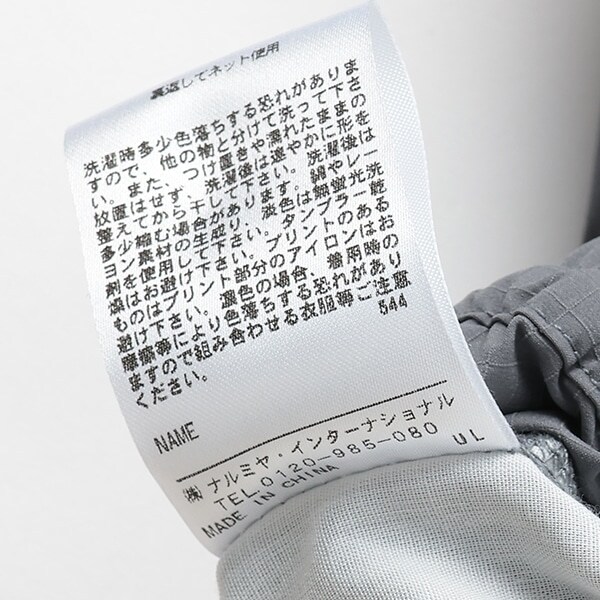 裏返してネット使用
洗濯時多少色落ちする恐れがありま
すので、他の物と分けて洗って下さ
い。また、つけ置きや濡れたままの
放置はせず、洗濯後は速やかに形を
整えてから干して下さい。洗濯後は
多少縮む場合があります。綿やレー
ヨン素材の生成り、淡色は無蛍光洗
剤を使用して下さい。タンブラー乾
燥はお避け下さい。プリントのある
ものはプリント部分のアイロンはお
避け下さい。濃色の場合、着用時の
摩擦等により色落ちする恐れがあり
ますので組み合わせる衣服等ご注意
ください。
544
NAME
㈱ ナルミヤ・インターナショナル
TEL.0120-985-080 UL
MADE IN CHINA